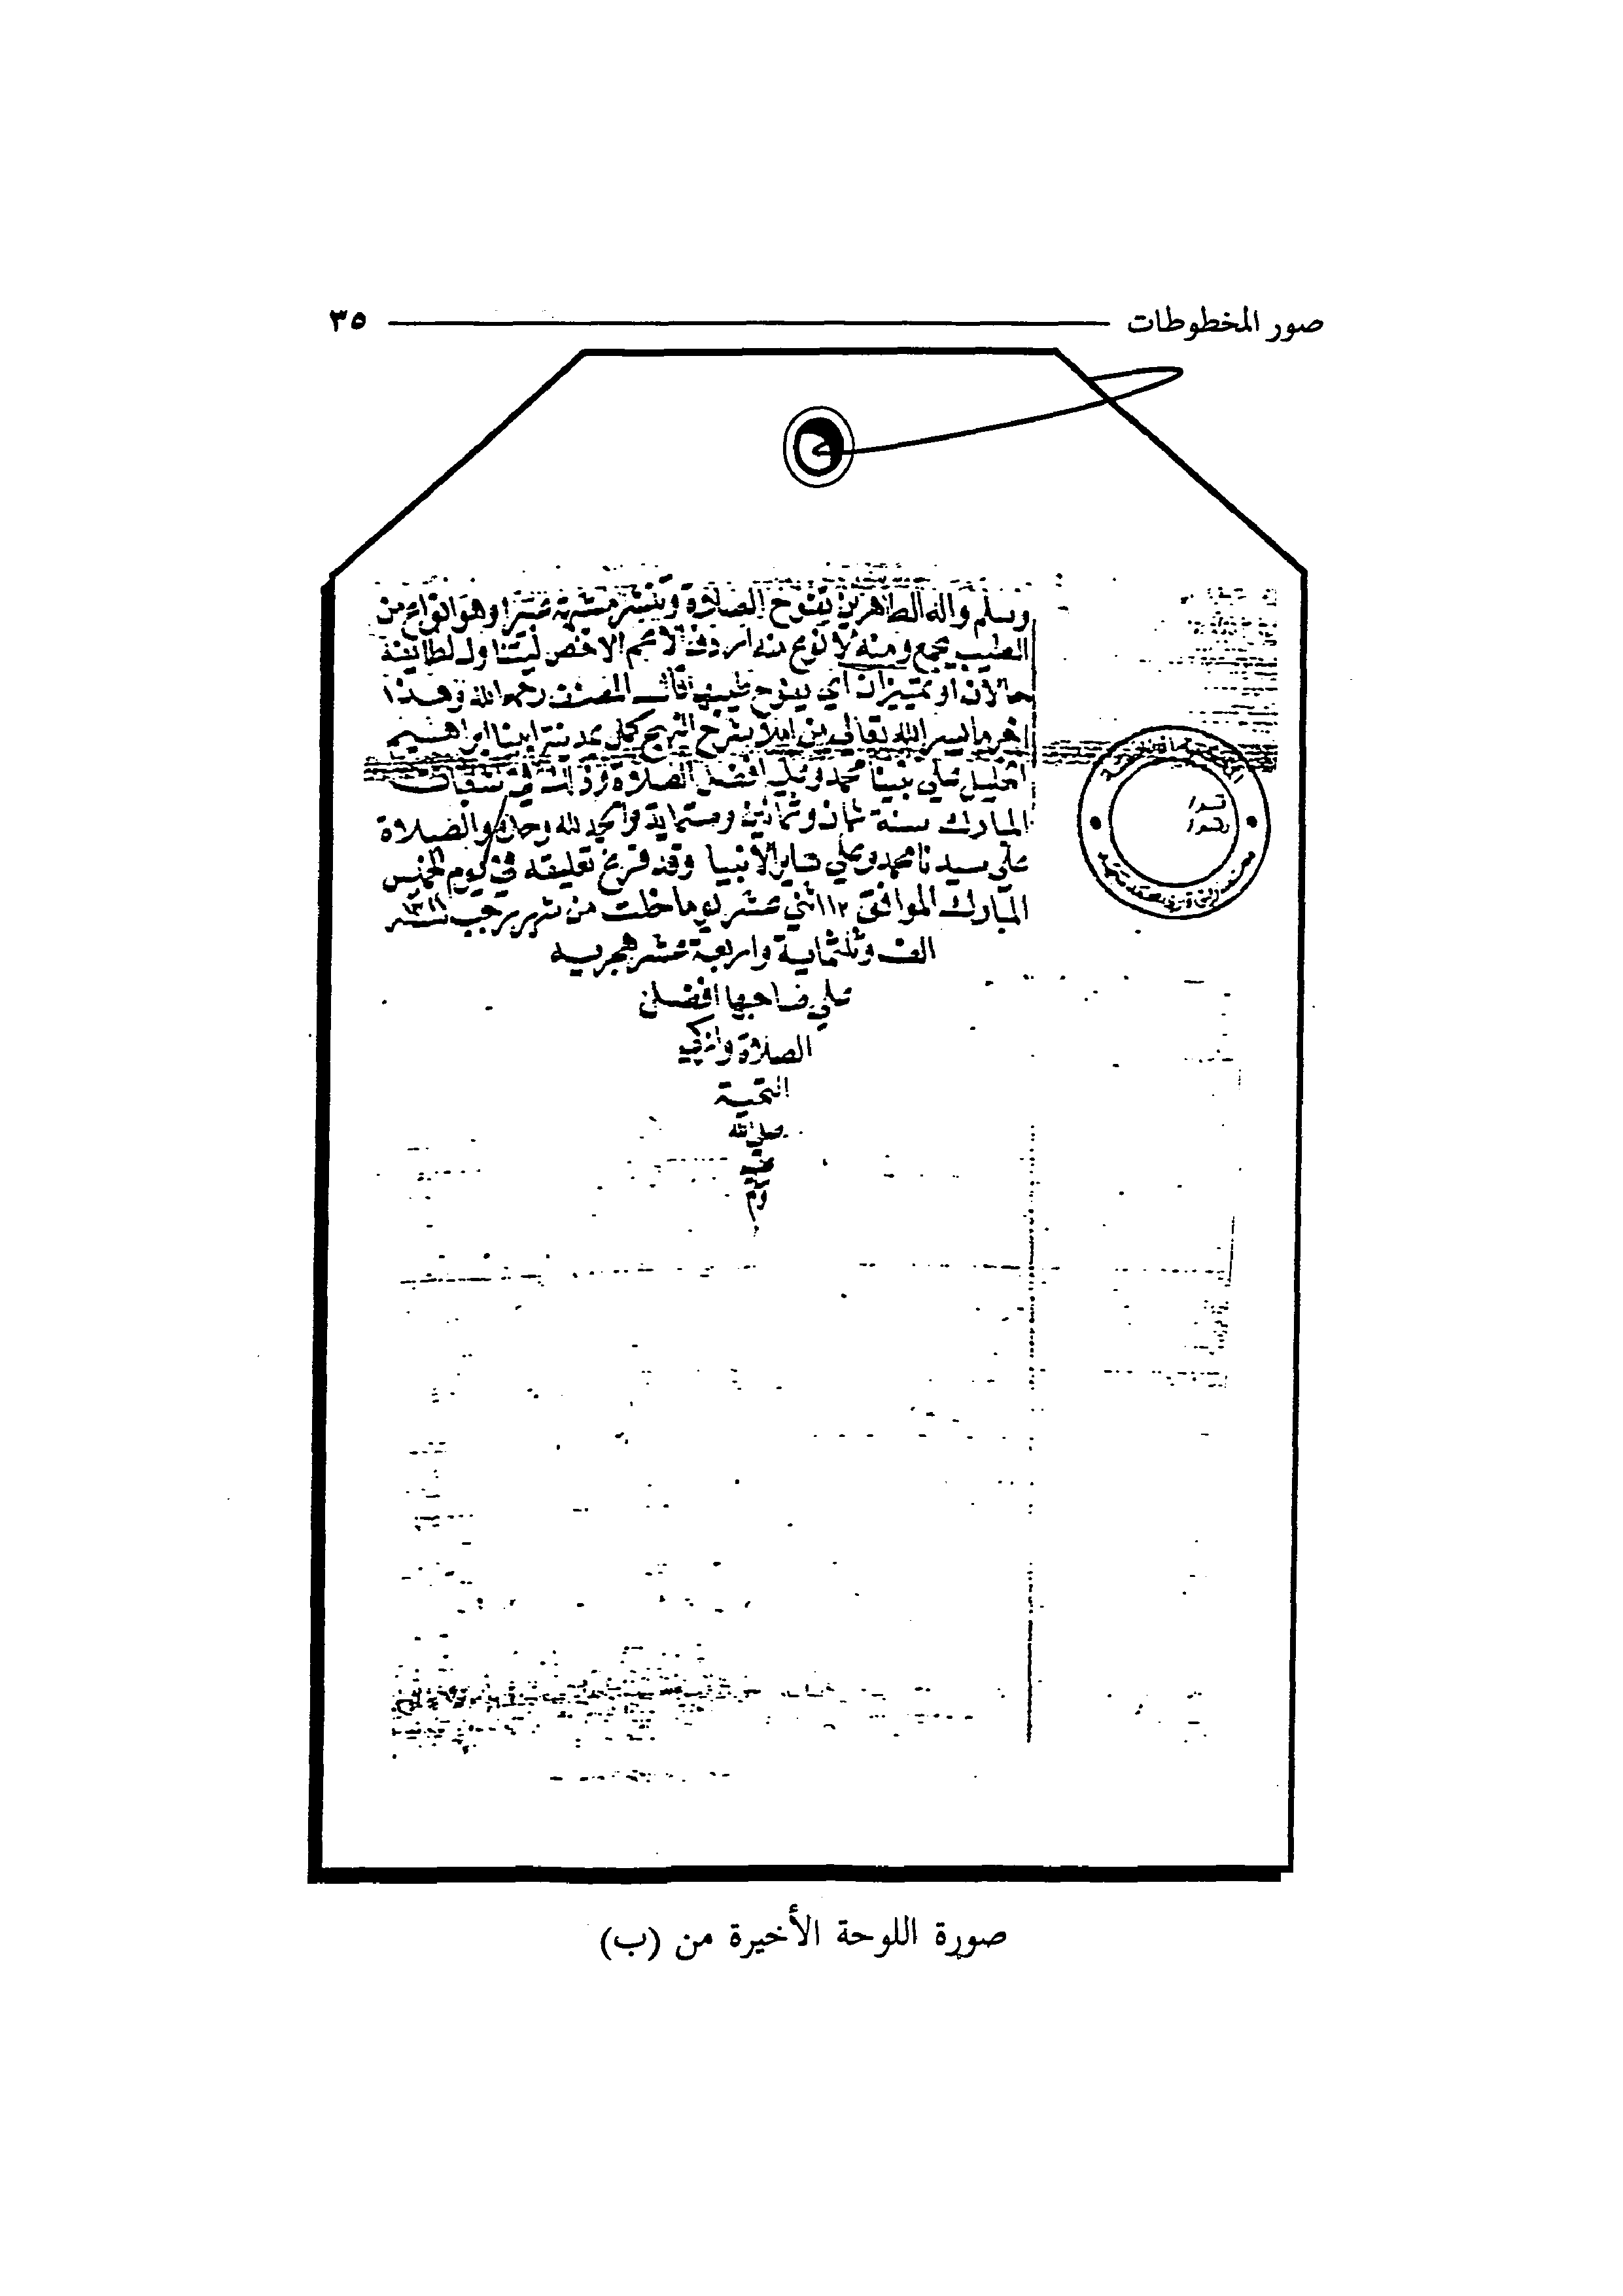 صور المخطوطات ٣٥
وسلم واله الطاهرين يفوح الصلاة وينشر مشبهة عنبرا وهو انواع من
الطيب يجمع ومنه لا نوع منه اردف الاعم الاخص ليتناول لطائفه
حالان او تمييزان اي يفوح طيبها قال المصنف رحمه الله وهذا
اخر ما يسر الله تعالى من املا بشرح النهج كمل بمدينة ابينا ابراهيم
الخليل على نبينا محمد وعليه افضل الصلاة وذلك في شعبان
المبارك سنة ثمان وثمانين وستماية والحمد لله وحده والصلاة
على سيدنا محمد وعلى ساير الانبيا وقد فرغ تعليقه في يوم الخميس
المبارك الموافق ١٢ اثني عشر يوما خلت من شهر رجب سنة
الف وثلثماية واربعة عشر هجريه
على صاحبها افضل
الصلاة وازكى
التحية
صلى الله
عليه
صور​ة اللوحة الأخيرة من (ب)